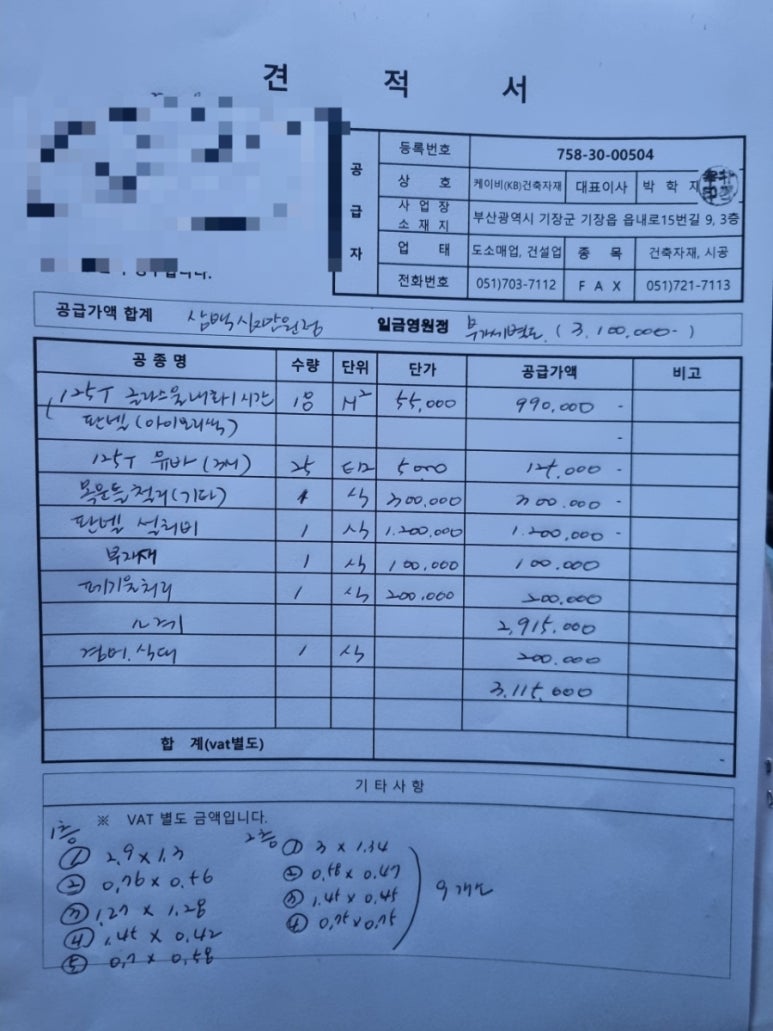 견 적 서
공급자
등록번호 758-30-00504
상 호 케이비(KB)건축자재 대표이사 박 학 재
사업장소재지 부산광역시 기장군 기장읍 읍내로15번길 9, 3층
업 태 도소매업, 건설업 종 목 건축자재, 시공
전화번호 051)703-7112 F A X 051)721-7113
공급가액 합계 삼백십만원정 일금영원정 부가세별도 (3,100,000-)
공 종 명 수량 단위 단가 공급가액 비고
125T 글라스울내화1시간 18 M² 55,000 990,000 -
판넬(아이보리색) -
125T 유바 25 5000 125,000 -
(기타) 1 식 300,000 300,000 -
판넬 설치비 1 식 1,200,000 1,200,000 -
부자재 1 식 100,000 100,000
폐기물처리 1 식 200,000 200,000
소계 2,915,000
경비.식대 1 식 200,000
3,115,000
합 계(vat별도) -
기 타 사 항
※ VAT 별도 금액입니다.
1층
① 2,9 x 1.3
② 0,76 x 0,56
③ 1,27 x 1.28
④ 1,45 x 0,42
⑤ 0,7 x 0,58
2층
① 3 x 1.34
② 0,58 x 0.47
③ 1.45 x 0,45
④ 0,75 x 0,75
9개소